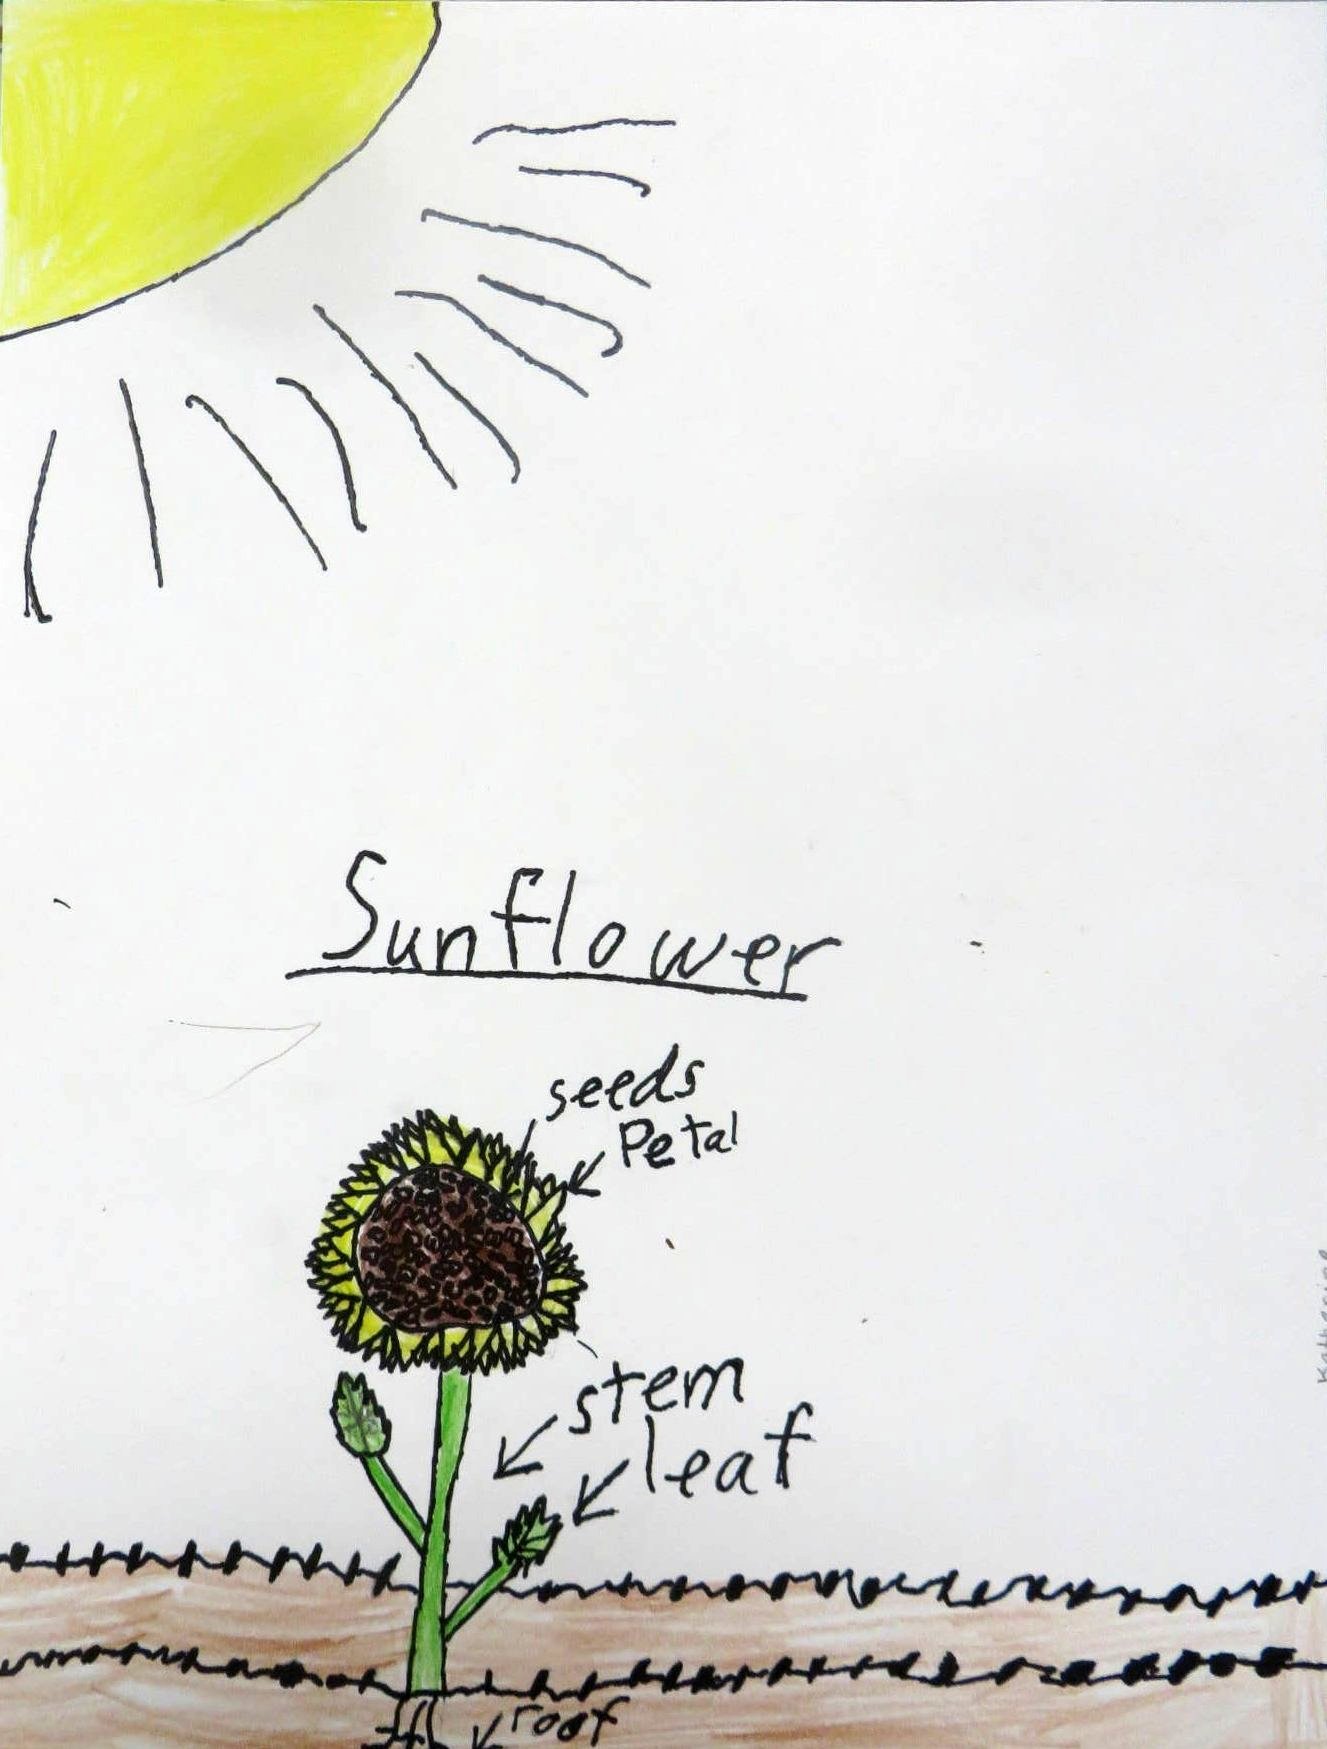 Sunflower
seeds
Petal
stem
leaf
root
Katherine